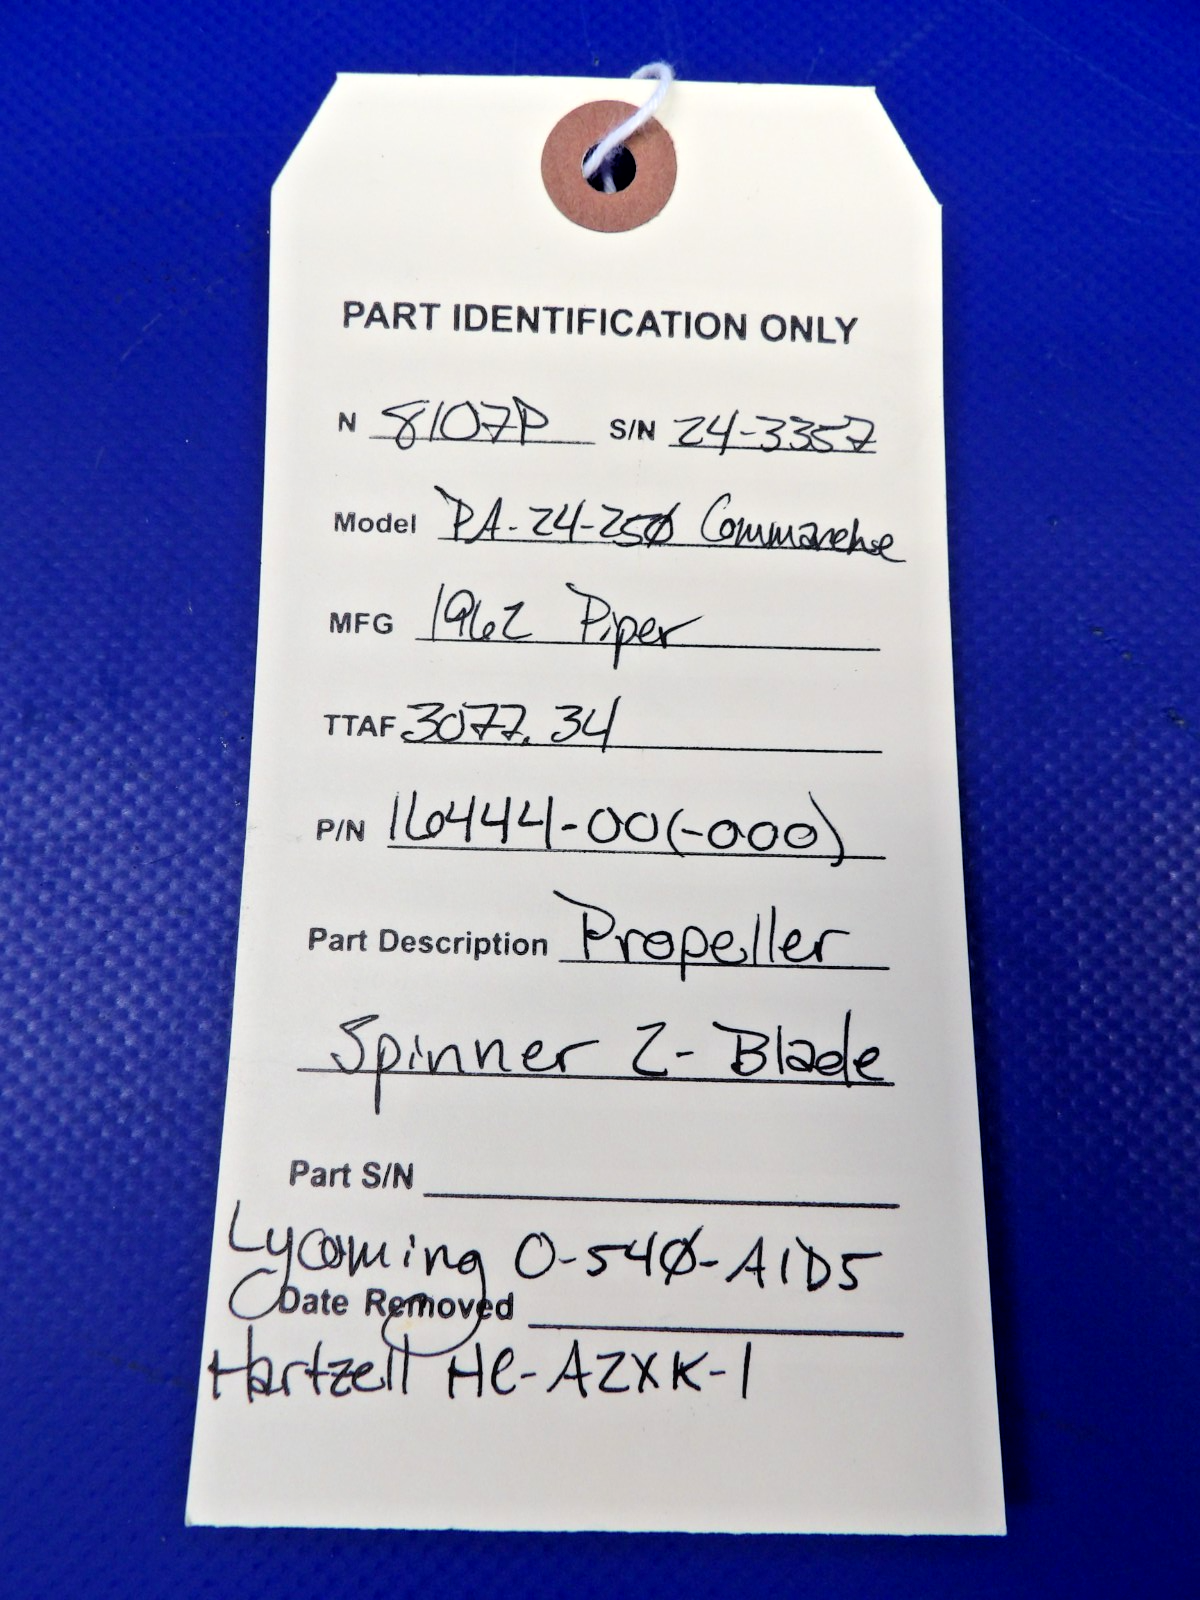 PART IDENTIFICATION ONLY
N 8107P S/N 24-3357
Model PA-24-25Ø Commanche
MFG 1962 Piper
TTAF 3077.34
P/N 16444-00(-000)
Part Description Propeller
Spinner 2-Blade
Part S/N
Lycoming O-54Ø-A1D5
Date Removed
Hartzell HC-A2XK-1